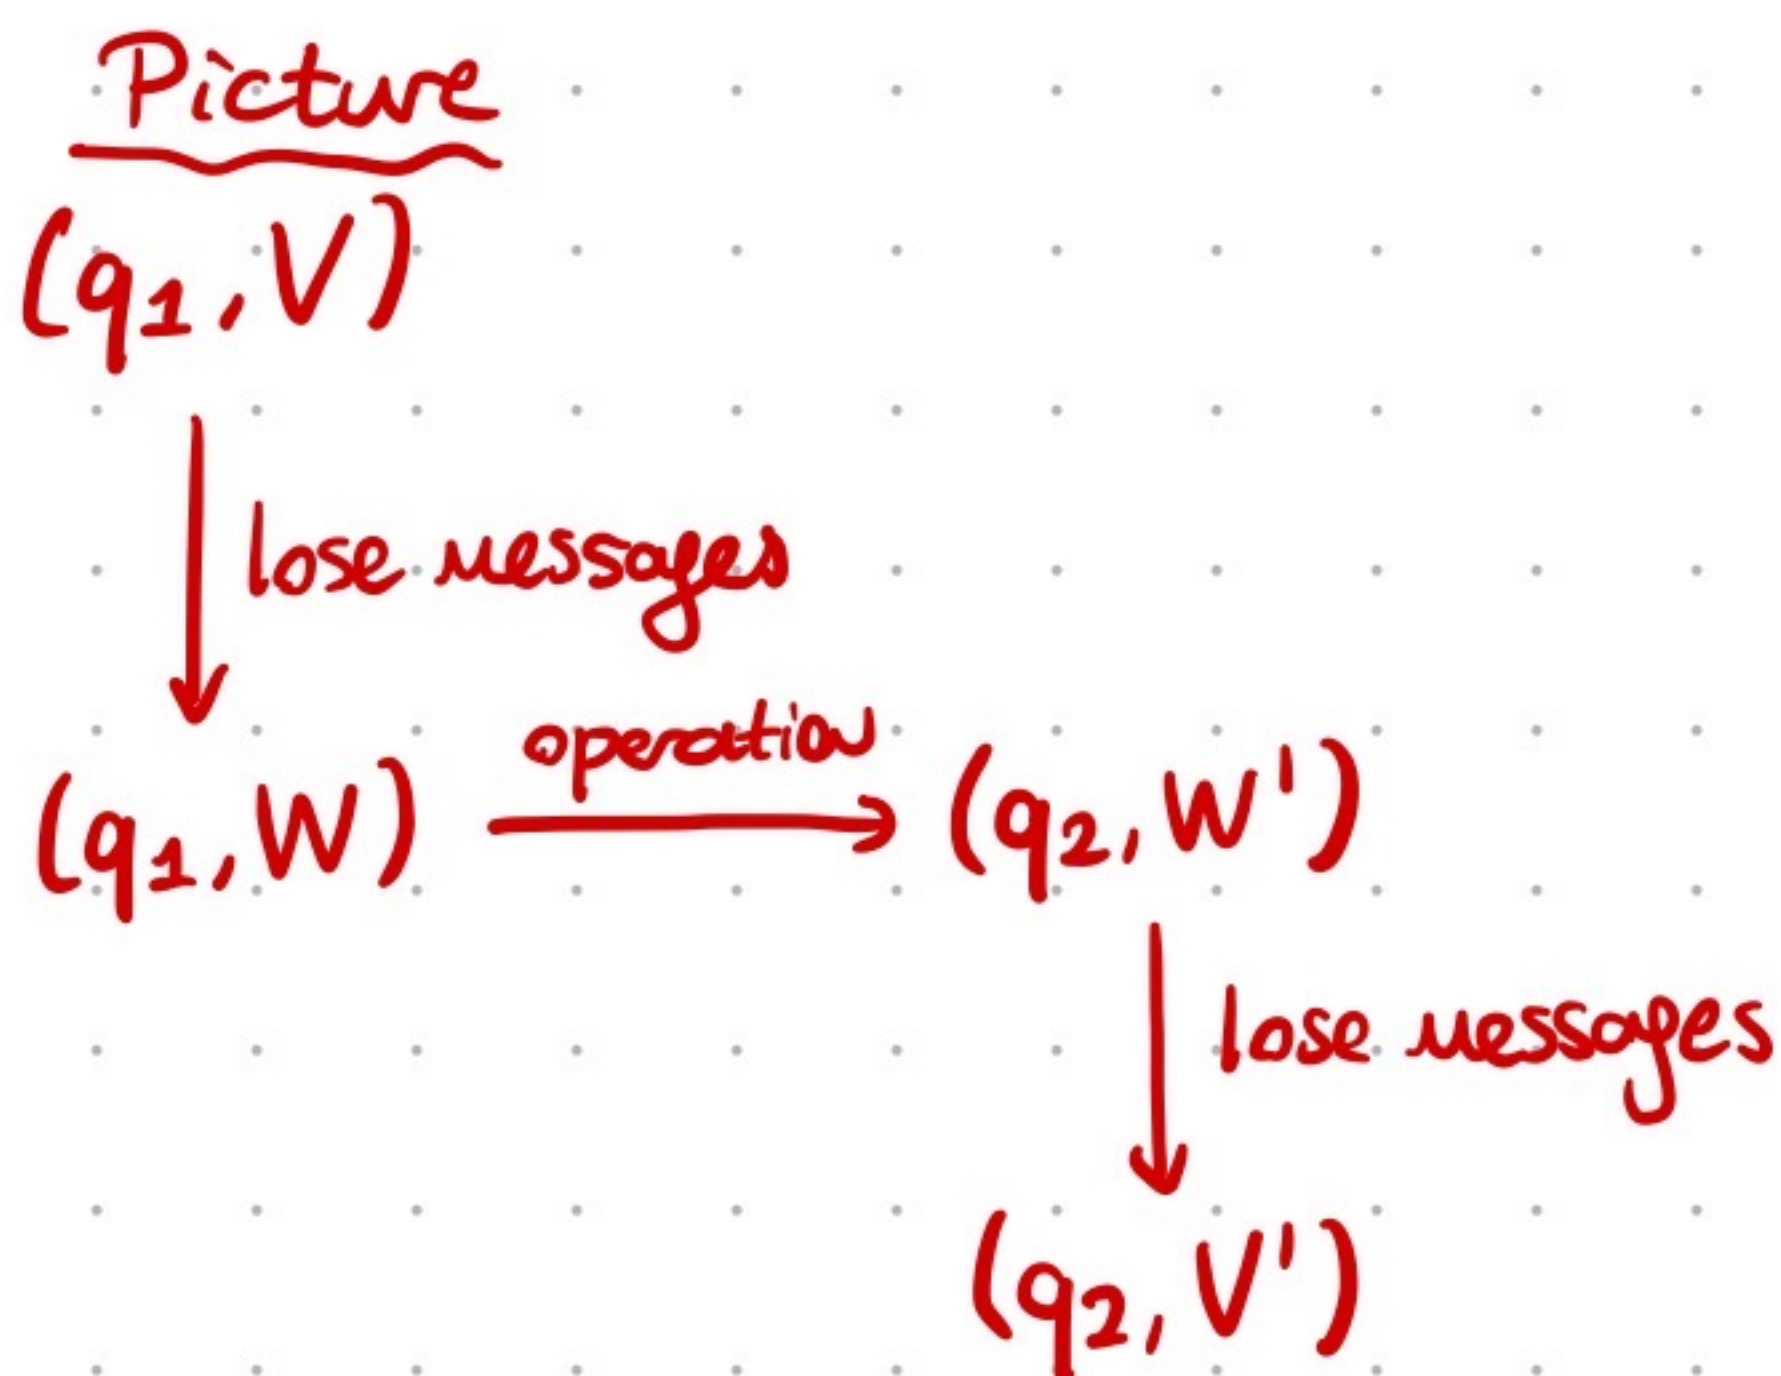 Picture
(q1, V)
lose messages
operation
(q1, W)
(q2, W')
lose messages
(q2, V')